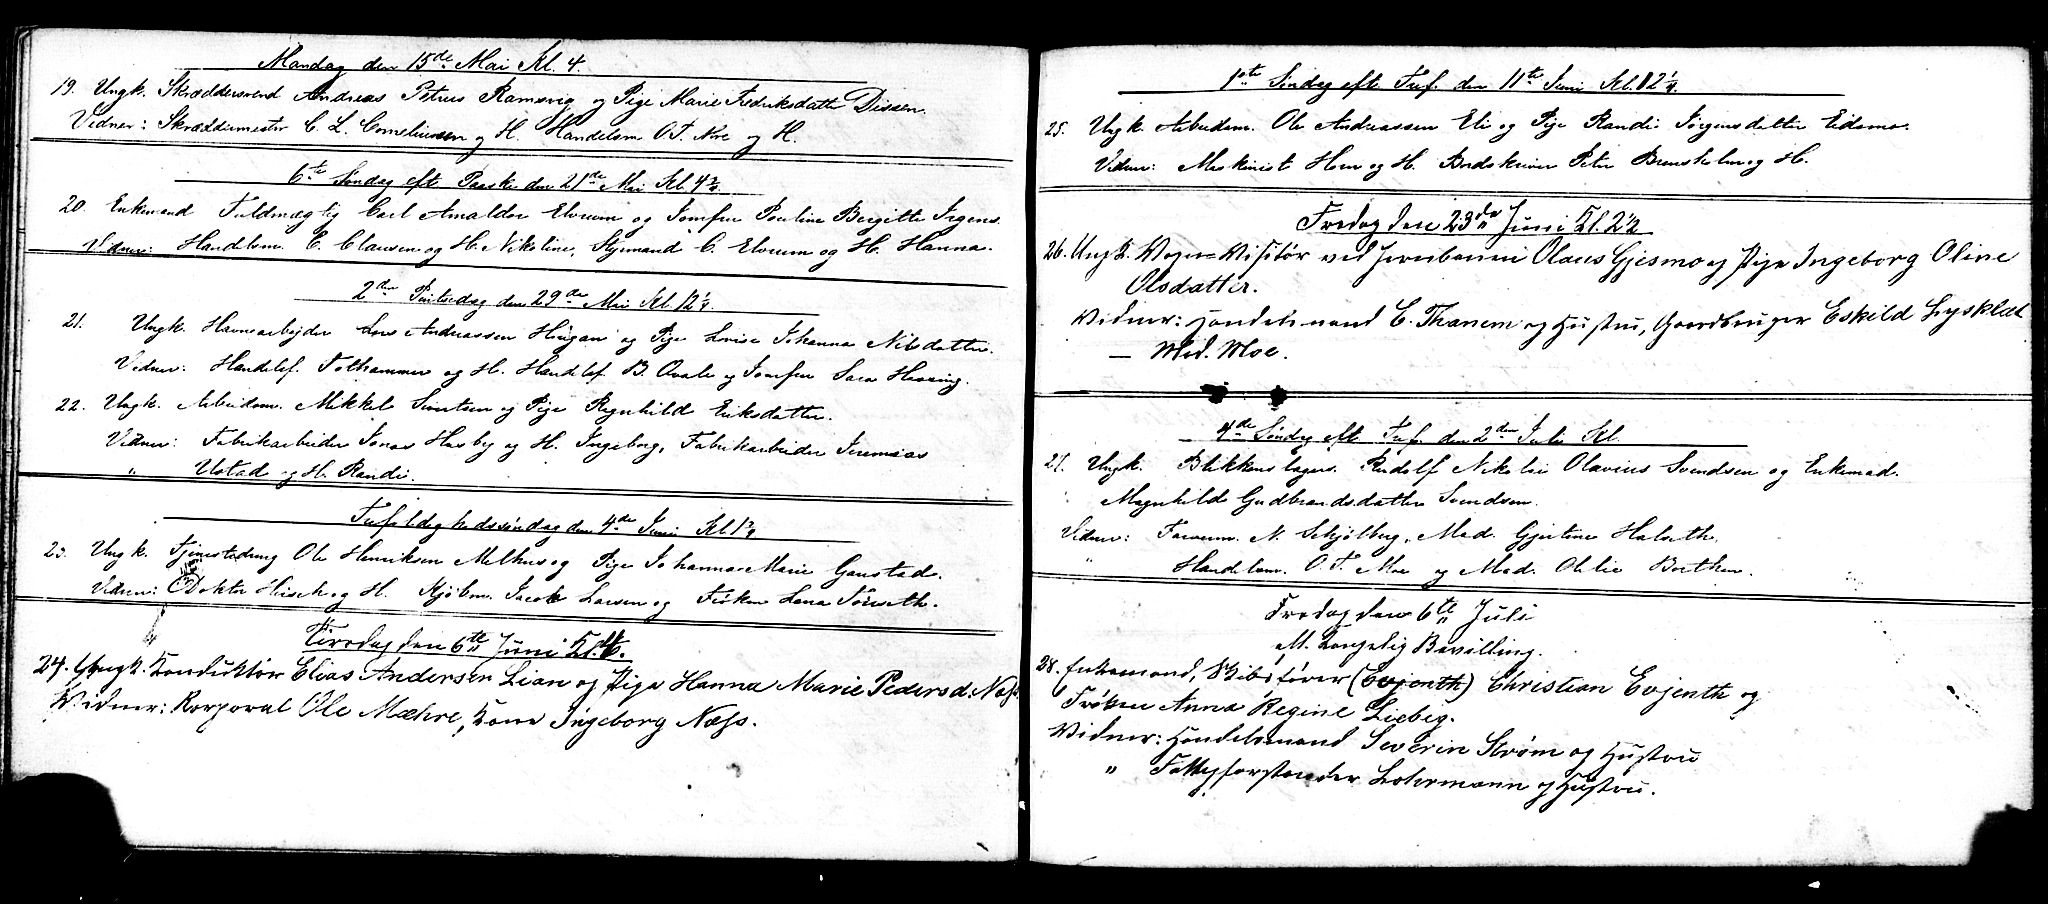 Mandag den 15de Mai Kl. 4.
19. Ungk. Skræddersvend Andreas Petrus Ramsvig og Pige Marie Fredriksdatter Dissen.
Vidner: Skræddermester C. L. Corneliussen og H. Handelsm. O. T. Moe og H.
6te Søndag eft Paaske den 21de Mai Kl. 4¾
20. Enkemand Fuldmægtig Carl Arnaldor Elvrum og Jomfru Pauline Bergitte Irgens.
Vidner: Handelsm. C. Clausen og H. Nikoline, Styrmand C. Elvrum og H. Hanna.
2den Pintsedag den 29de Mai Kl. 12¼
21. Ungk. Havnearbejder Lars Andreassen Haugan og Pige Lovise Johanna Nilsdatter.
Vidner: Handelsf. Folhammer og H. Handelsf. B. Qvale og Jomfru Sara Hessing.
22. Ungk. Arbeidsm. Mikkel Sivertsen og Pige Regnhild Eriksdatter.
Vidner: Fabrikarbeider Jonas Husby og H. Ingeborg, Fabrikarbeider Jeremias
" Ustad og H. Randi.
Trefoldighedssøndag den 4de Juni Kl. 1¾
23. Ungk. Tjenestedreng Ole Henriksen Melhus og Pige Johanna Marie Ganstad.
Vidner: Doktor Hirsch og H. Kjøbm. Jacob Larsen og Frøken Lena Tønseth.
Tirsdag den 6te Juni Kl.
24. Ungk. Konduktør Elias Andersen Lian og Pige Hanna Marie Pedersd. Næss
Vidner: Korporal Ole Mæhre, Kone Ingeborg Næss.
1ste Søndag eft Tref. den 11te Juni Kl. 12¼
25. Ungk. Arbeidsm. Ole Andreassen Eli og Pige Randi Jørgensdatter Eidsmo.
Vidner: Maskinist Hoen og H. Brødskriver Peter Brunsholm og H.
Fredag den 23de Juni Kl. 2½
26. Ungk. Vogn-Visitør ved Jernbanen Olaus Gjesmo og Pige Ingeborg Oline
Olsdatter.
Vidner: Handelsmand E. Thanem og Hustru, Gaardbruger Eskild Lysklæt
— Mad. Moe.
4de Søndag eft Tref. den 2den Juli Kl.
27. Ungk. Blikkenslagers. Rudolf Nikolai Olavius Svendsen og Enkemad.
Magnhild Gudbrandsdatter Svendsen.
Vidner: Farverm. N. Schjølberg, Mad. Gjertine Halseth.
" Handelsm. O. T. Moe og Mad. Olilie Berthen.
Fredag den 6te Juli
M. Kongelig Bevilling.
28. Enkemand, Skibsfører (Evjenth) Christian Evjenth og
Frøken Anna Regine Liebig.
Vidner: Handelsmand Severin Strøm og Hustru
" Fattigforstander Lohrmann og Hustru.